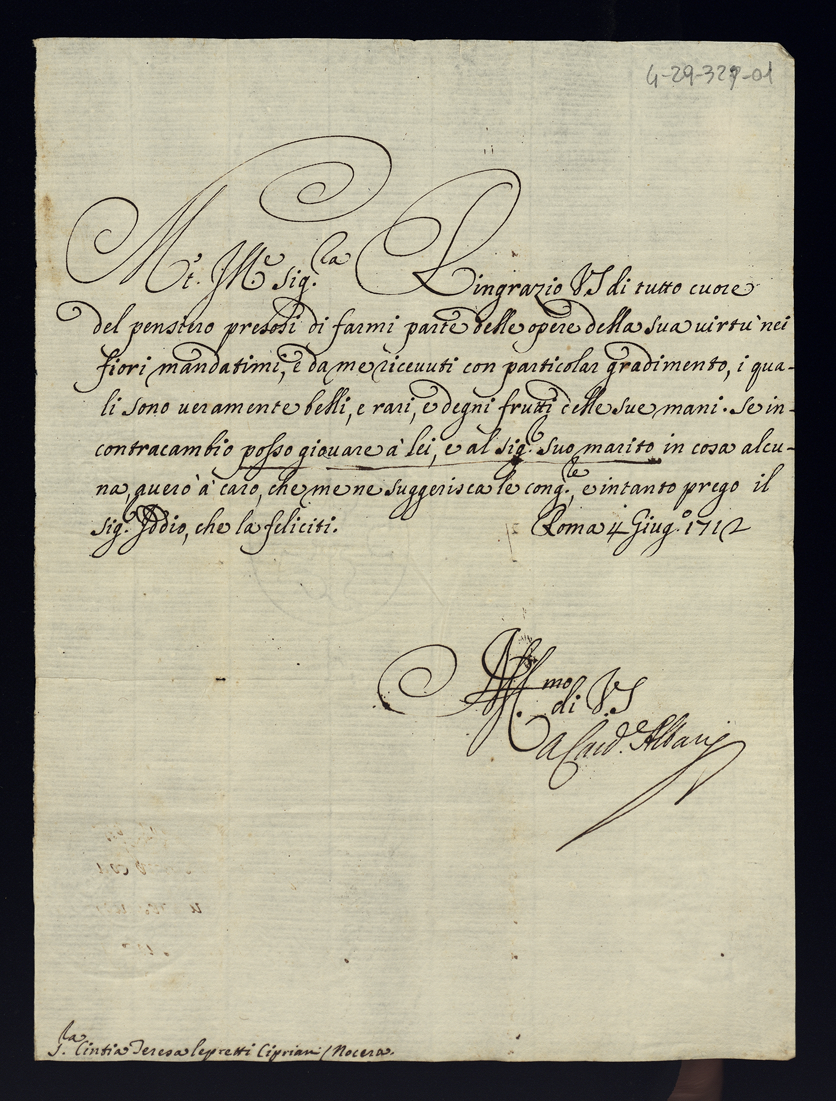 4-29-329-01
M.t Ill.e Sig.la Ringrazio VS di tutto cuore
del pensiero presosi di farmi parte delle opere della sua virtù nei
fiori mandatimi, e da me ricevuti con particolar gradimento, i qua-
li sono veramente belli, e rari, e degni frutti delle sue mani. Se in
contracambio posso giovare à lei, e al sig.e suo marito in cosa alcu-
na, averò à caro, che me ne suggerisca le cong.le, e intanto prego il
sig.e Iddio, che la feliciti. Roma 4 Giug.o 1712
Aff.mo
di V.S
A Card.e Albani
S.la Cintia Teresa Lepretti Cipriani / Nocera.